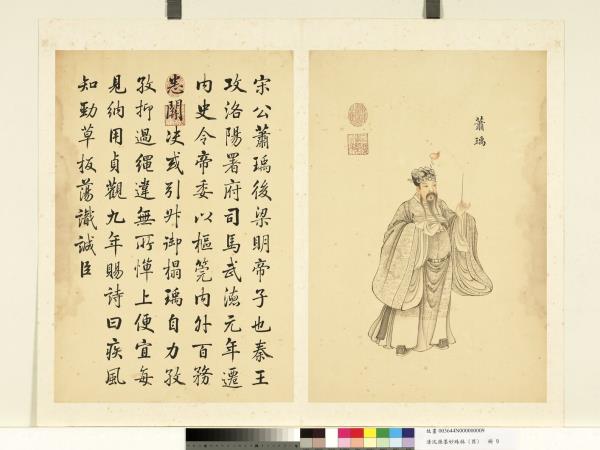 蕭瑀
宋公蕭瑀後梁明帝子也秦王
攻洛陽署府司馬武德元年遷
內史令帝委以樞筦內外百務
悉關决或引升御榻瑀自力孜
孜抑過繩違無所憚上便宜每
見納用貞觀九年賜詩曰疾風
知勁草板蕩識誠臣
故畫 003644N00000009
清沈源墨妙珠林（酉） 冊 9